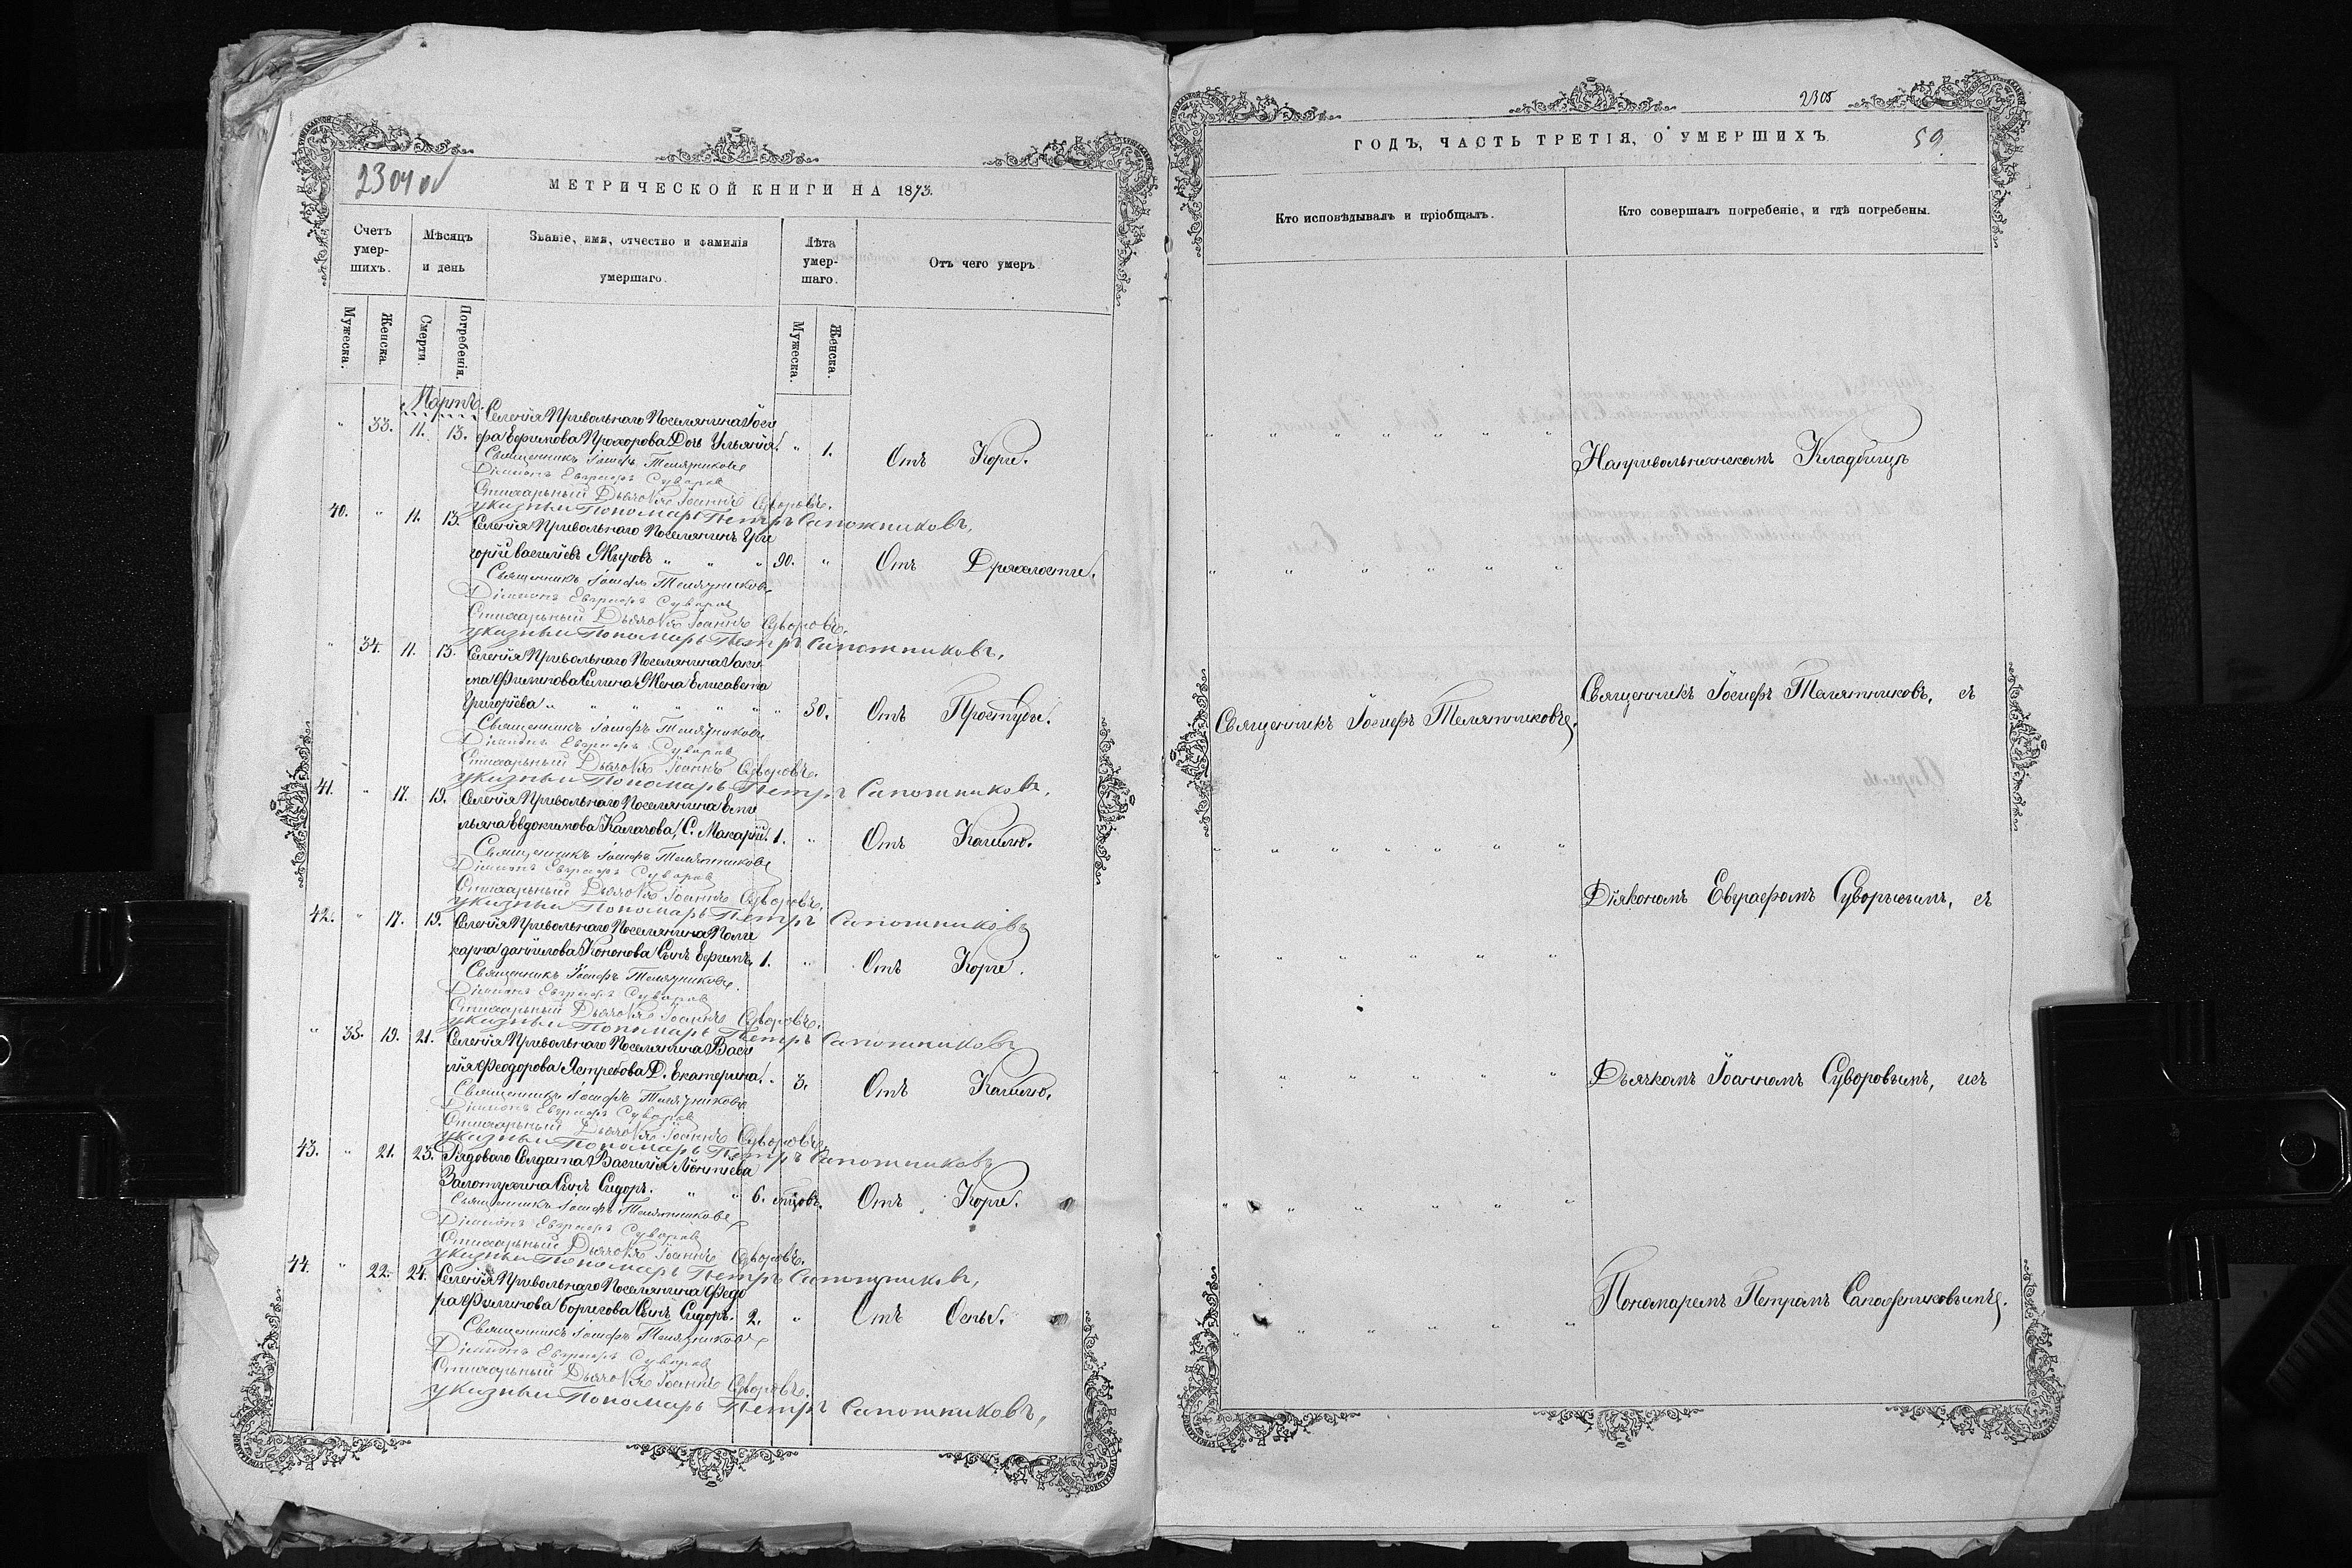 2304 об
МЕТРИЧЕСКОЙ КНИГИ НА 1873.
Счетъ умер-шихъ.
Мѣсяцъ и день
Званіе, имя, отчество и фамилія умершаго.
Лѣта умер-шаго.
Отъ чего умеръ.
Мужеска.
Женска.
Смерти.
Погребенія.
Мужеска.
Женска.
Мартъ.
" 33. 11. 13. Селенія Привольнаго Поселянина Іоси
фа Ефимова Прохорова Дочь Ульянія. " 1. Отъ Корі.
Священникъ Іосифъ Телятниковъ
Діаконъ Евграфъ Суворов
Стихарный Дьячокъ Іоаннъ Суворовъ.
указный Пономарь Петръ Сапожниковъ,
40. " 11. 13. Селенія Привольнаго Поселянинъ Гри
горій Васильевъ Жыровъ " " " 90. " Отъ Дряхлости.
Священникъ Іосифъ Телятниковъ
Діаконъ Евграфъ Суворов
Стихарный Дьячокъ Іоаннъ Суворовъ.
указный Пономарь Петръ Сапожниковъ,
" 34. 11. 13. Селенія Привольнаго Поселянина Іаки
ма Филипова Селина Жена Елисавета
Григоріева " " " " " " " 30. Отъ Простуды.
Священникъ Іосифъ Телятниковъ
Діаконъ Евграфъ Суворов
Стихарный Дьячокъ Іоаннъ Суворовъ.
указный Пономарь Петръ Сапожниковъ,
41. " 17. 19. Селенія Привольнаго Поселянина Еми
льяна Евдокимова Калачова, С. Макарій. 1. " Отъ Кашлю.
Священникъ Іосифъ Телятниковъ
Діаконъ Евграфъ Суворов
Стихарный Дьячокъ Іоаннъ Суворовъ.
указный Пономарь Петръ Сапожниковъ
42. " 17. 19. Селенія Привольнаго Поселянина Поли
карпа Даніилова Кононова Сынъ Ефимъ. 1. " Отъ Корі.
Священникъ Іосифъ Телятниковъ.
Діаконъ Евграфъ Суворов
Стихарный Дьячокъ Іоаннъ Суворовъ.
указный Пономарь Петръ Сапожниковъ
" 35. 19. 21. Селенія Привольнаго Поселянина Васи
лія Феодорова Ястребова Д. Екатерина. " 3. Отъ Кашлю.
Священникъ Іосифъ Телятниковъ
Діаконъ Евграфъ Суворов
Стихарный Дьячокъ Іоаннъ Суворовъ
указный Пономарь Петръ Сапожниковъ
43. " 21. 23. Рядоваго Солдата Василія Леонтіева
Залотухина Сынъ Сидоръ. " " 6. мцовъ. Отъ Корі.
Священникъ Іосифъ Телятниковъ
Діаконъ Евграфъ Суворов
Стихарный Дьячокъ Іоаннъ Суворовъ.
указный Пономарь Петръ Сапожниковъ,
44. " 22. 24. Селенія Привольнаго Поселянина Федо
ра Филипова Борисова Сынъ Сидоръ. 2. " Отъ Оспы.
Священникъ Іосифъ Телятниковъ
Діаконъ Евграфъ Суворов
Стихарный Дьячокъ Іоаннъ Суворовъ.
указный Пономарь Петръ Сапожниковъ,
2305
ГОДЪ, ЧАСТЬ ТРЕТІЯ, О УМЕРШИХЪ.
59.
Кто исповѣдывалъ и пріобщалъ.
Кто совершалъ погребеніе, и гдѣ погребены.
" " " " " " "
На Привольнянскомъ Кладбищѣ
" " " " " "
Священникъ Іосифъ Телятниковъ, съ
Священникъ Іосифъ Телятниковъ.
" " " " " " "
Діякономъ Евграфомъ Суворовымъ, съ
" " " " " "
Дьячкомъ Іоанномъ Суворовымъ, исъ
" " " " " "
" " " " " "
Пономаремъ Петромъ Сапожниковымъ.
" " " " " "